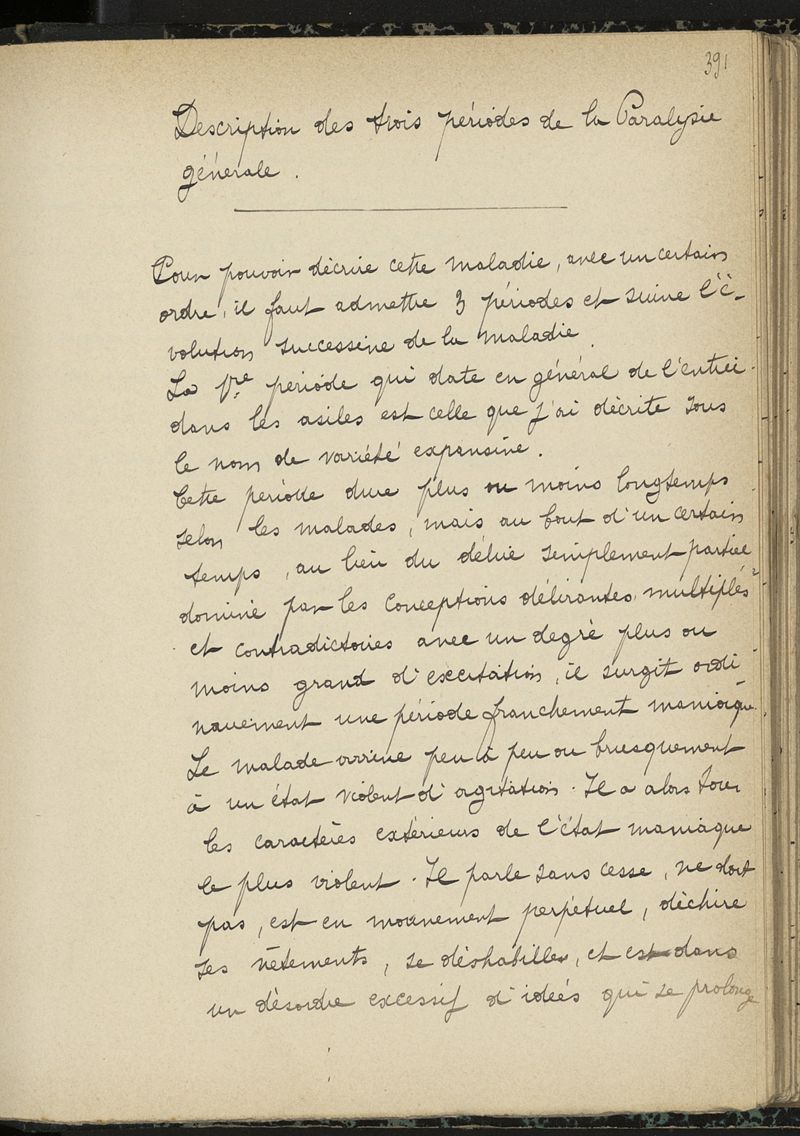 391
Description des trois périodes de la Paralysie
générale.
Pour pouvoir décrire cette maladie, avec un certain
ordre, il faut admettre 3 périodes et suivre l'é-
volution successive de la maladie.
La 1re période qui date en général de l'entrée
dans les asiles est celle que j'ai décrite sous
le nom de variété expansive.
Cette période dure plus ou moins longtemps
selon les malades, mais au bout d'un certain
temps, au lieu du délire simplement partiel
dominé par les conceptions délirantes, multiples
et contradictoires avec un degré plus ou
moins grand d'excitation, il surgit ordi-
nairement une période franchement maniaque.
Le malade arrive peu à peu ou brusquement
à un état violent d'agitation. Il a alors tous
les caractères extérieurs de l'état maniaque
le plus violent. Il parle sans cesse, ne dort
pas, est en mouvement perpétuel, déchire
ses vêtements, se déshabille, et est dans
un désordre excessif d'idées qui se prolonge